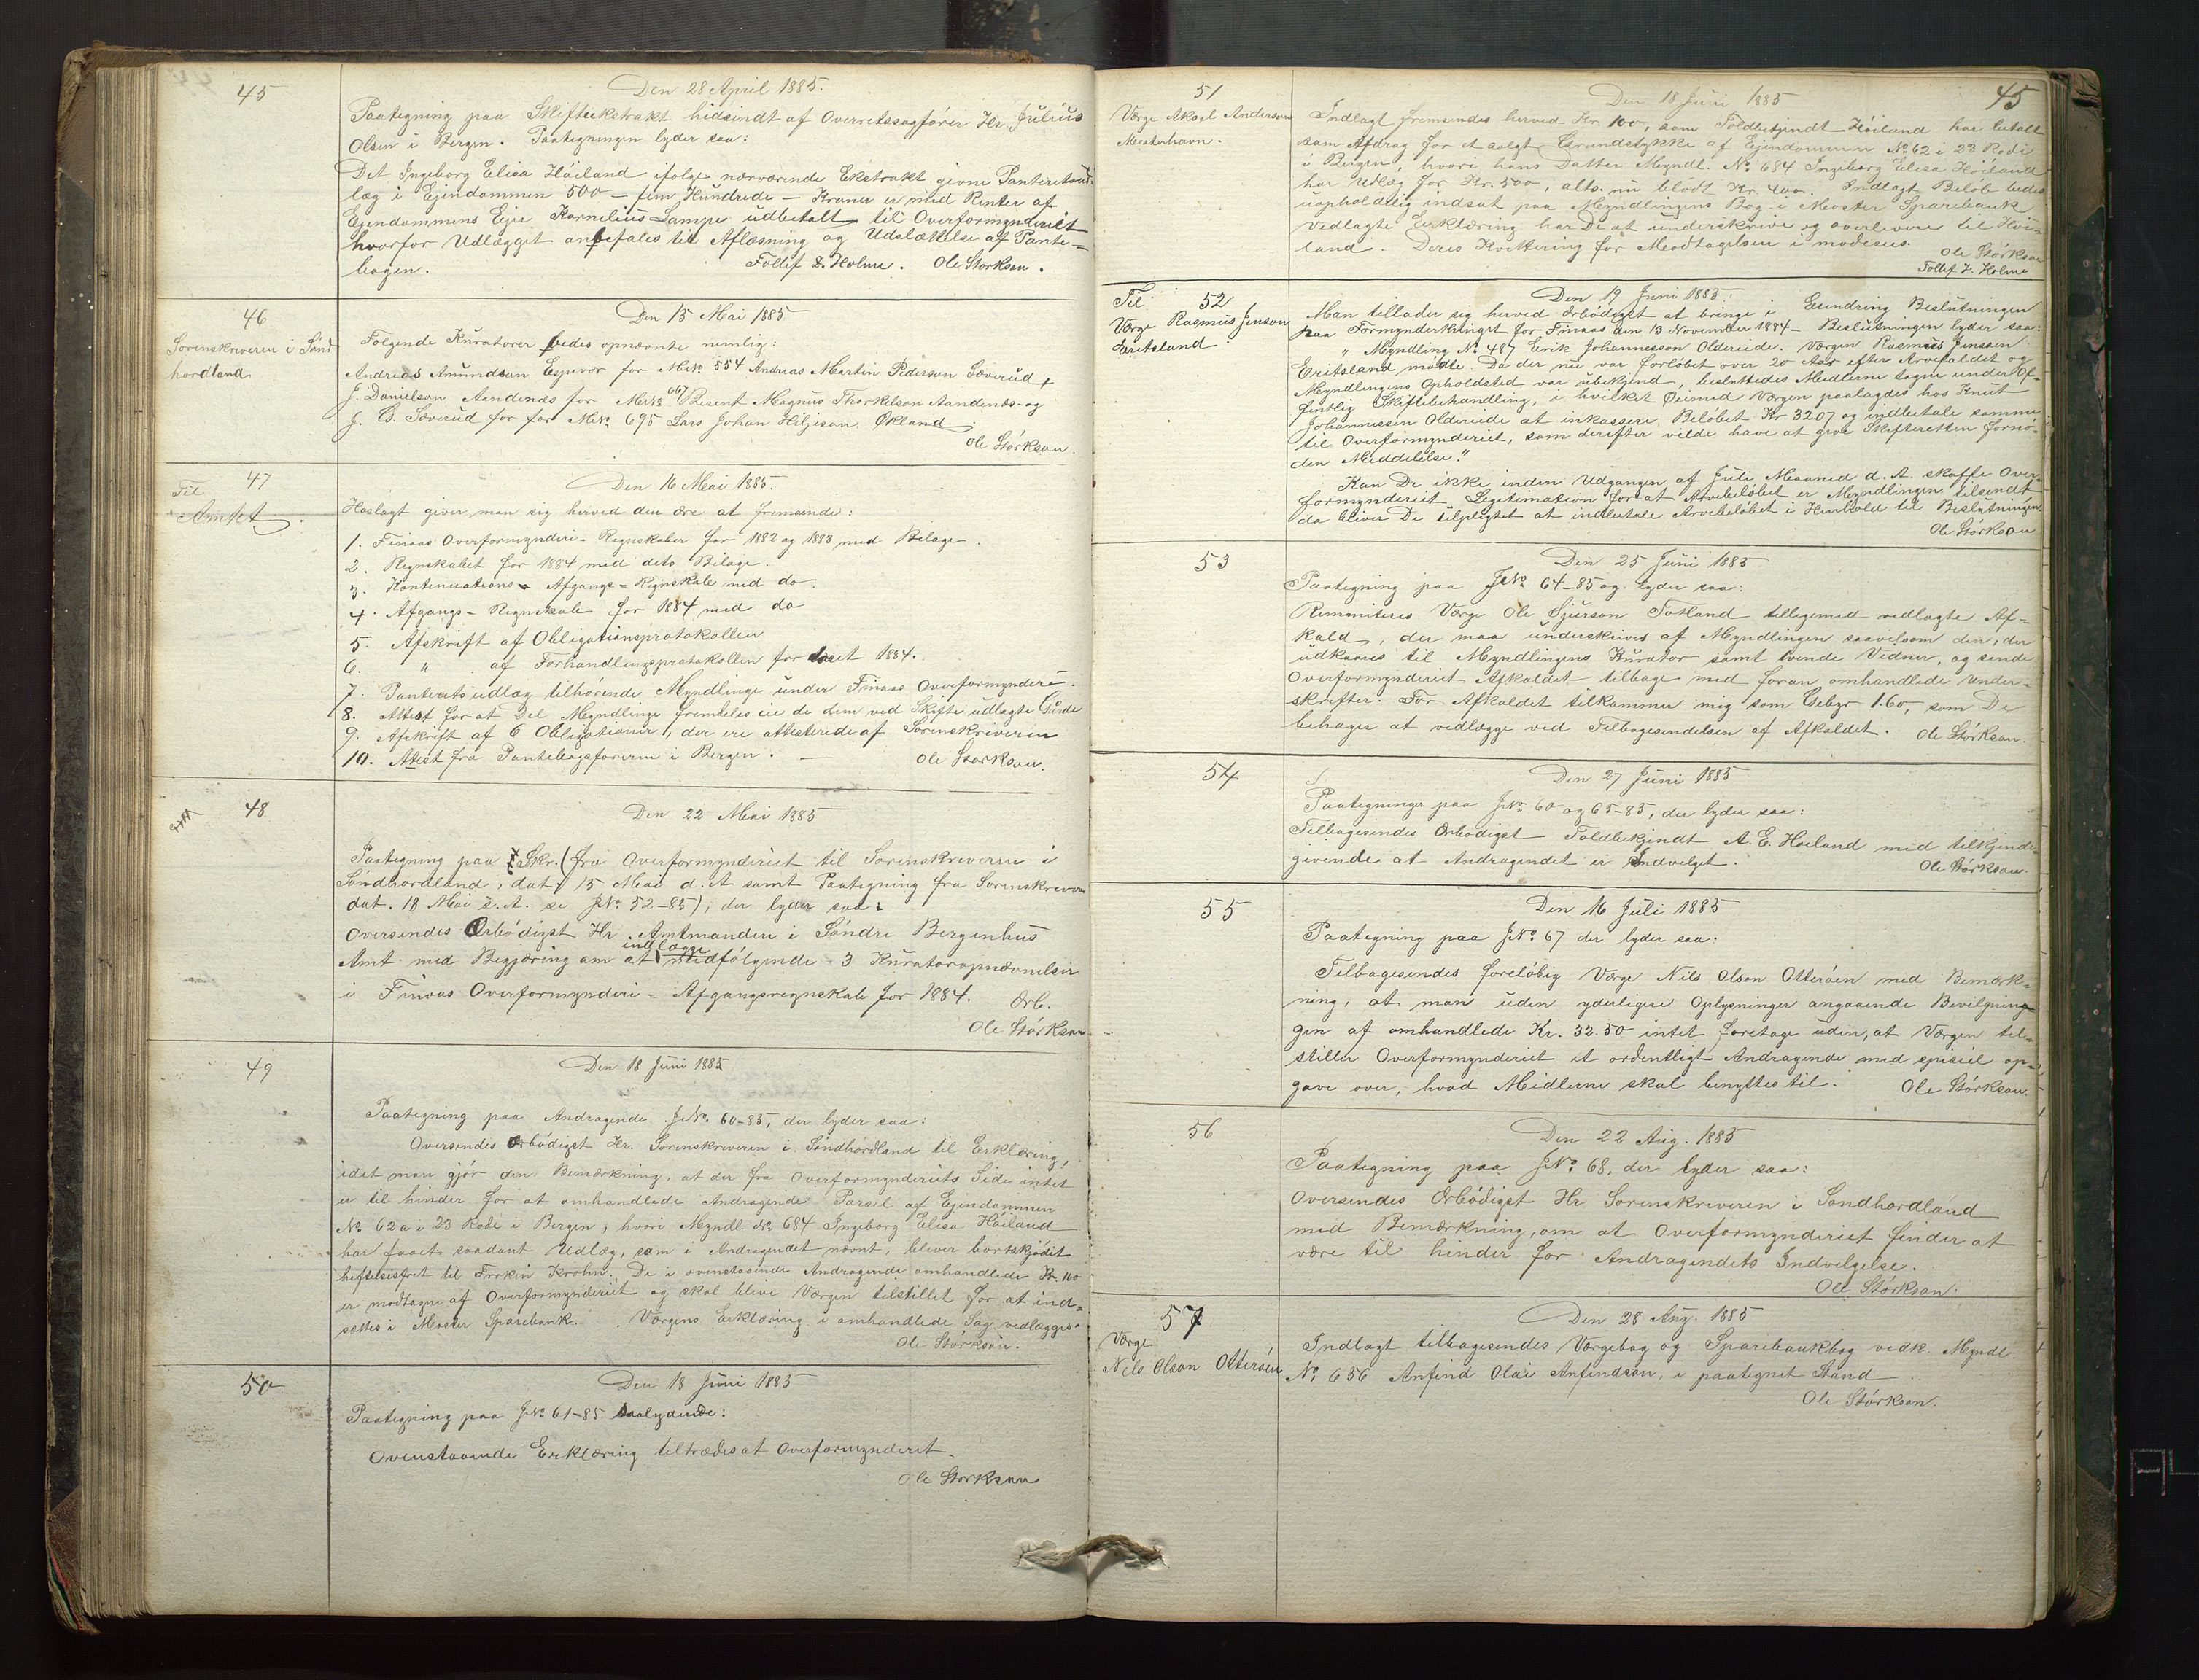 45
Den 28 April 1885.
Paategning paa Skifteekstrakt hidsindt af Overretssagfører Hr. Julius
Olsen i Bergen. Paategningen lyder saa:
Det Ingeborg Elisa Höiland ifølge nærværende Ekstrakt givne Panteretsud-
læg i Ejendommen 500 – fem Hundrede – Kroner er med Renter af
Ejendommens Ejer Kornelius Lampe udbetalt til Overformynderiet
hvorfor Udlægget anbefales til Aflæsning og Udslættelse af Pante-
bogen. Tollef J. Holme. Ole Størkson.
46
Sorenskriveren i Sönd
hordland
Den 15 Mai 1885
Følgende Kuratorer bedes opnævnte nemlig:
Andreas Amundsen Espevær for M. № 554 Andreas Martin Pederson Sæverud,
J. Danielson Aandenæs for M. № 667 Berent Magnus Thorkelson Aandenæs og
J. C. Sæverud for for M. № 695 Lars Johan Hiljeson Økland
Ole Størkson.
47
Til
Amtet
Den 16 Mai 1885.
Hoslagt giver man sig herved den ære at fremsende:
1. Finaas Overformynderi-Regnskaber for 1882 og 1883 med Bilage.
2. Regnskabet for 1884 med dets Bilage.
3. Kontinuations- Afgangs-Regnskab med do.
4. Afgangs-Regnskab for 1884 med do
5. Afskrift af Obligationsprotokollen
6. " af Forhandlingsprotokollen for Aaret 1884.
7. Panteretsudlæg tilhørende Myndlinge under Finaas Overformynderi.
8. Attest for at Del Myndlinge fremdeles eie de dem ved Skifte udlagte Gaarde
9. Afskrift af 6 Obligationer, der ere attesterede af Sorenskriveren
10. Attest fra Pantebogsføreren i Bergen. — Ole Størkson.
48
Den 22 Mai 1885
Paategning paa Skr. (fra Overformynderiet til Sorenskriveren i
Söndhordland, dat. 15 Mai d. A samt Paategning fra Sorenskriveren
dat. 18 Mai s. A. se J№ 52-85), der lyder saa:
Oversendes Ærbödigst Hr. Amtmanden i Söndre Bergenhus
Amt med Begjæring om at indlægge medfölgende 3 Kuratoropnævnelser
i Finaas Overformynderi-Afgangsregnskab for 1884. Ærb.
Ole Størkson
49
Den 18 Juni 1885
Paategning paa Andragende J№ 60-85, der lyder saa:
Oversendes Ærbødigst Hr. Sorenskriveren i Söndhordland til Erklæring,
idet man gjör den Bemærkning, at der fra Overformynderiets Side intet
er til hinder for at omhandlede Andragende Parsel af Ejendommen
№ 62a i 23 Rode i Bergen, hvori Myndl. № 684 Ingeborg Elisa Höiland
har faaet saadant Udlæg, som i Andragendet nævnt, bliver bortskjödet
heftelsesfret til Frøkin Krohn. De i ovenstaaende Andragende omhandlede Kr. 100
er modtagne af Overformynderiet og skal blive Værgen tilstillet for at ind-
sættes i Moster Sparebank. Værgens Erklæring i omhandlede Sag vedlægges.
Ole Størkson.
50
Den 18 Juni 1885
Paategning paa J№ 61-85 saalydende:
Ovenstaaende Erklæring tiltrædes at Overformynderiet.
Ole Størkson
45
51
Værge Aksel Anderson
Mosterhavn.
Den 18 Juni 1885
Indlagt fremsendes herved Kr 100, som Toldbetjendt Höiland har betalt
som Afdrag for et solgt Grundstykke af Ejendommen № 62 i 23 Rode
i Bergen, hvori hans Datter Myndl. № 684 Ingeborg Elisa Höiland
har Udlæg for Kr. 500, alts. nu blødt Kr. 400. Indlagt Beløb bedes
uopholdelig indsat paa Myndlingens Bog i Moster Sparebank
Vedlagte Erklæring har De at underskrive og overlevere til Höi-
land. Deres Kvittering for Modtagelsen imødesees.
Ole Størkson
Tollef J. Holme
Til 52
Værge Rasmus Jenson
Eritsland
Den 19 Juni 1885.
Man tillader sig herved ærbödigst at bringe i Erindring Beslutningen
paa Formynderthinget for Finaas den 13 November 1884 – Beslutningen lyder saa:
" Myndling № 487 Erik Johannesson Oldereide. Værgen Rasmus Jenssen
Eritsland mødte. Da der nu var forløbet over 20 Aar efter Arvefaldet og
Myndlingens Opholdsted var ubekjend, besluttedes Midlerne tagne under Of-
fentlig Skiftebehandling, i hvilket Øiemed Værgen paalagdes hos Knut
Johannessen Oldereide at inkassere Beløbet Kr. 3207 og indbetale samme
til Overformynderiet, som derefter vilde have at give Skifteretten fornö-
den Meddelelse."
Kan De ikke inden Udgangen af Juli Maaned d. A. skaffe Over-
formynderiet Legitimation for at Arvebeløbet er Myndlingen tilsendt
da bliver De tilpligtet at indbetale Arvebeløbet i Henhold til Beslutningen
Ole Størkson
53
Den 25 Juni 1885
Paategning paa J№ 64-85 og lyder saa:
Remoniteres Værge Ole Sjurson Totland tilligemed vedlagte Af-
kald, der maa underskrives af Myndlingen saavelsom den, der
udkaares til Myndlingens Kurator samt tvende Vidner, og sende
Overformynderiet Afkaldet tilbage med foran omhandlede Under-
skrifter. For Afkaldet tilkommer mig som Gebyr 1.60, som De
behager at vedlægge ved Tilbagesendelsen af Afkaldet. Ole Størkson.
54
Den 27 Juni 1885
Paategninger paa J№ 60 og 65-85, der lyder saa:
Tilbagesendes Ærbödigst Toldbetjendt A. E. Høiland med tilkjende-
givende at Andragendet er Indvilget.
Ole Størkson.
55
Den 16 Juli 1885
Paategning paa J№ 67 der lyder saa:
Tilbagesendes foreløbig Værge Nils Olson Otterøen med Bemærk-
ning, at man uden yderligere Oplysninger angaaende Bevilgnin-
gen af omhandlede Kr. 32.50 intet foretage uden, at Værgen til-
stiller Overformynderiet et ordentligt Andragende med spisiel op-
gave over, hvad Midlerne skal benyttes til. Ole Størkson.
56
Den 22 Aug. 1885
Paategning paa J№ 68, der lyder saa:
Oversendes Ærbödigst Hr Sorenskriveren i Søndhordland
med Bemærkning, om at Overformynderiet finder at
være til hinder for Andragendets Indvilgelse.
Ole Størkson.
57
Værge
Nils Olson Otterøen
Den 28 Aug. 1885
Indlagt tilbagesendes Værgebog og Sparebankbog vedk. Myndl.
№ 656 Anfind Olai Anfindsøn, i paategnet Stand
Ole Størkson.